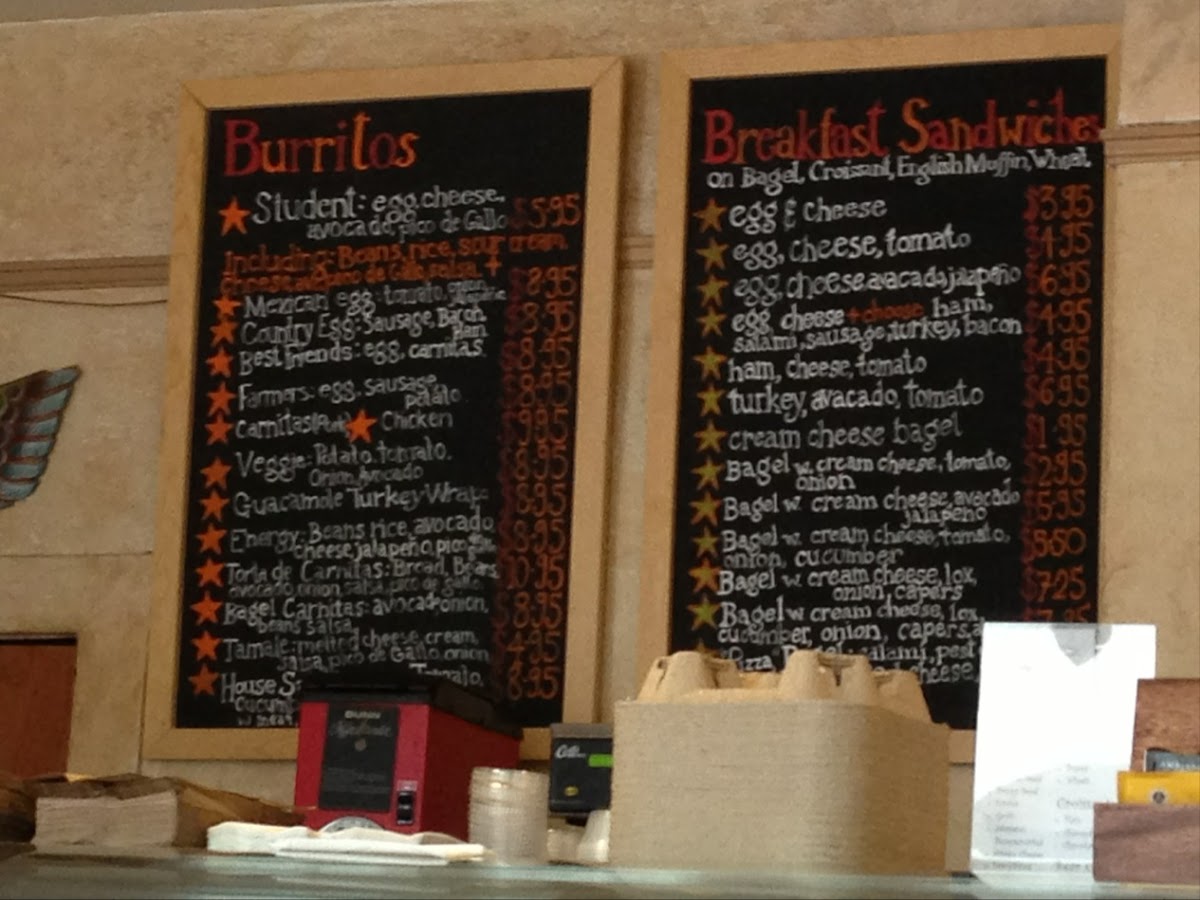 Burritos
Student: egg, cheese,
avocado, pico de Gallo $5.95
Including: Beans, rice, sour cream,
cheese, pico de Gallo, salsa, +
Mexican egg: tomato, onion, $8.95
jalapeño
Country Egg: Sausage, Bacon, $8.95
Ham
Best friends: egg, carnitas $8.95
Farmers: egg, sausage, $8.95
potato
Carnitas (Pork) Chicken $9.95
Veggie: Potato, tomato, $8.95
Onion, Avocado
Guacamole Turkey Wrap: $8.95
Energy: Beans rice, avocado, $8.95
cheese, jalapeño, pico de gallo
Torta de Carnitas: Bread, Beans, $10.95
avocado, onion, salsa, pico de gallo
Bagel Carnitas: avocado, onion, $8.95
beans salsa
Tamale: melted cheese, cream, $4.95
salsa, pico de Gallo, onion
House Tomato, $8.95
Cucum
Breakfast Sandwiches
on Bagel, Croissant, English Muffin, Wheat,
egg & cheese $3.95
egg, cheese, tomato $4.95
egg, cheese, avacado, jalapeño $6.95
egg, cheese + choose ham, $4.95
salami, sausage, turkey, bacon
ham, cheese, tomato $4.95
turkey, avacado, tomato $6.95
cream cheese bagel $1.95
Bagel w. cream cheese, tomato, $2.95
onion
Bagel w. cream cheese, avocado $5.95
jalapeño
Bagel w. cream cheese, tomato, $5.50
onion, cucumber
Bagel w. cream cheese, lox, $7.25
onion, capers
Bagel w cream cheese, lox,
cucumber, onion, capers,
Pizza Bagel: salami, pest
cheese,